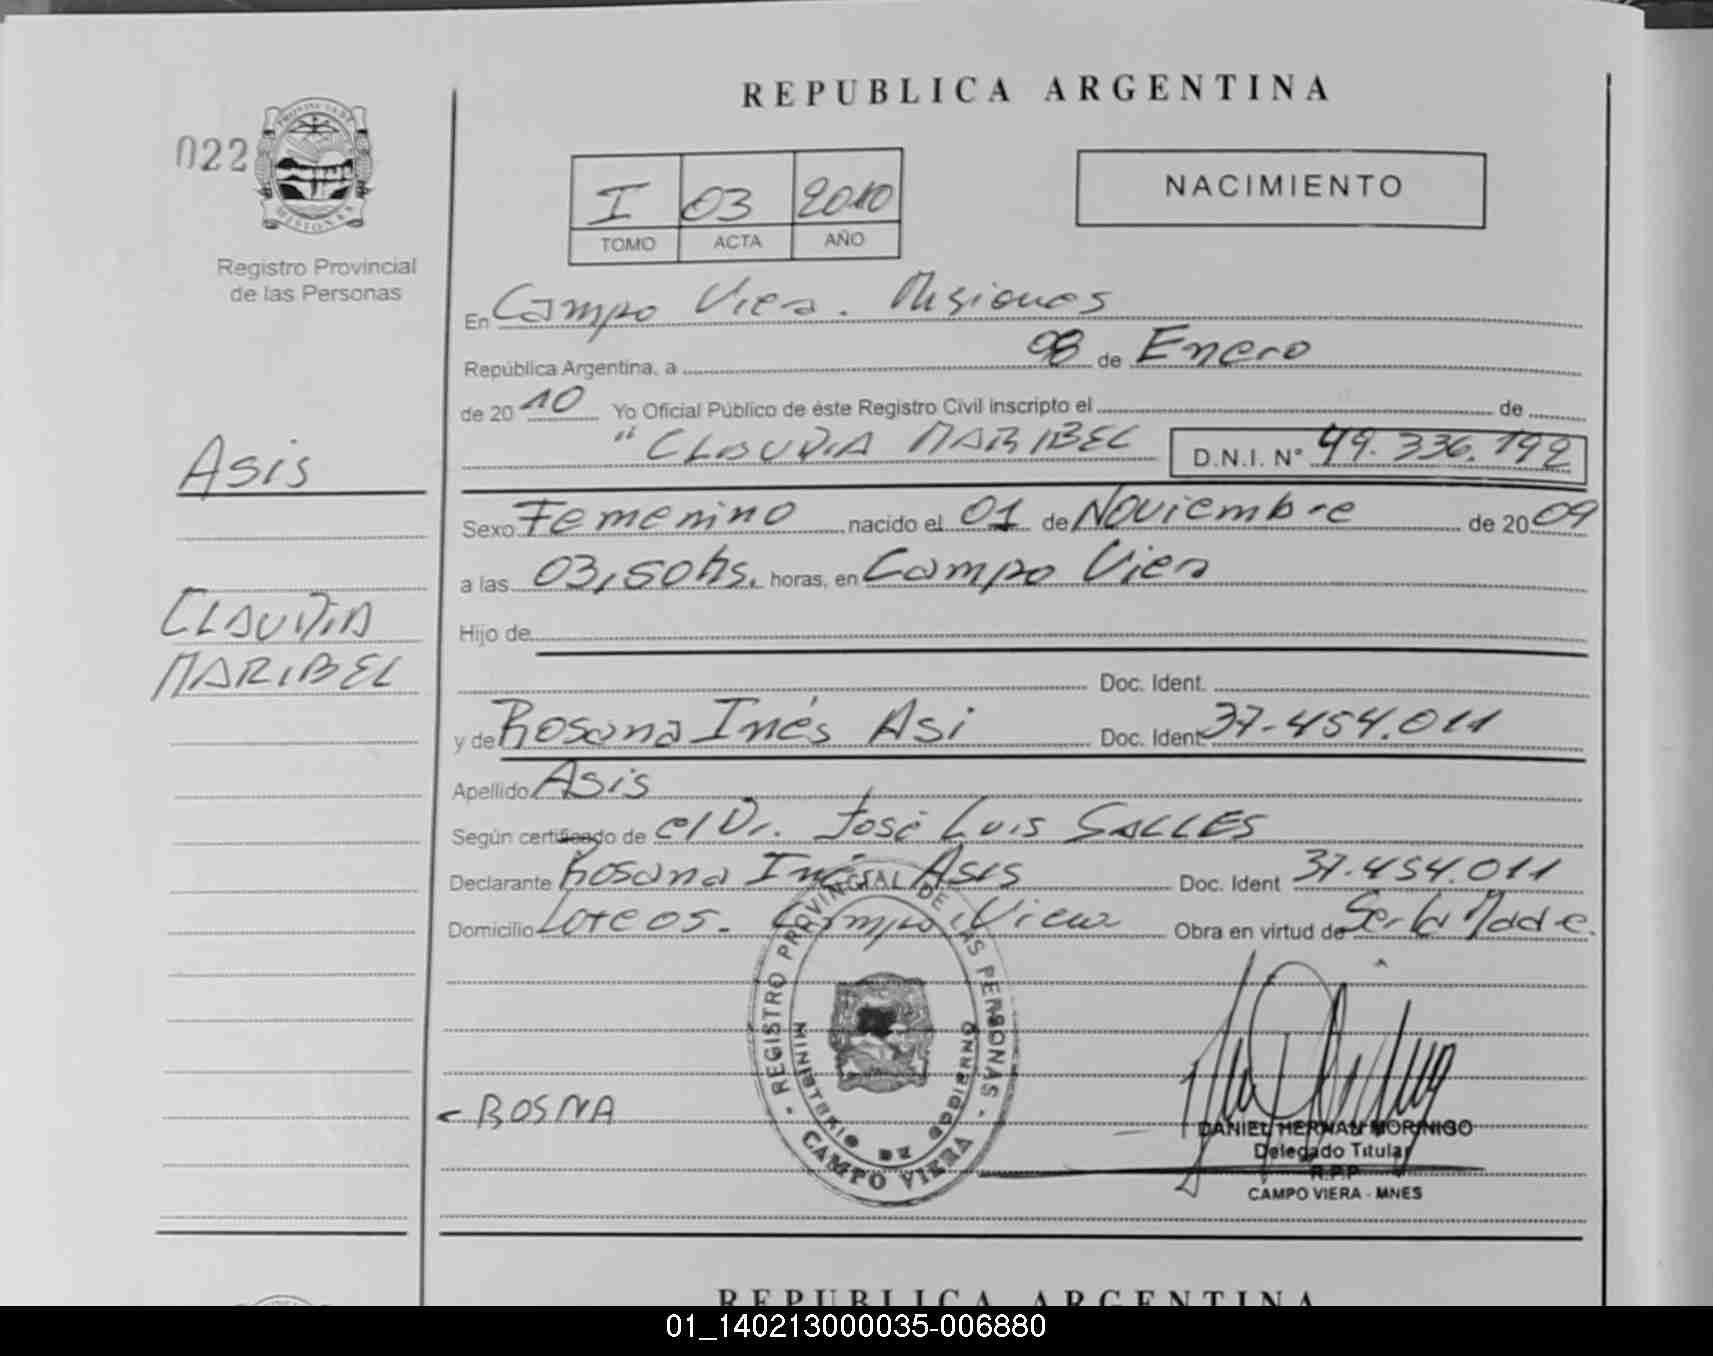 REPUBLICA ARGENTINA
022
PROVINCIA DE
MISIONES
Registro Provincial
de las Personas
I 03 2010
TOMO ACTA AÑO
NACIMIENTO
En Campo Viera. Misiones
República Argentina, a 08 de Enero
de 20 10 Yo Oficial Público de éste Registro Civil inscripto el de
" CLAUDIA MARIBEL D.N.I. N° 49.336.792
Asis
Sexo Femenino nacido el 01 de Noviembre de 20 09
a las 03,50hs. horas, en Campo Viera
CLAUDIA
MARIBEL
Hijo de
Doc. Ident.
y de Rosana Inés Asi Doc. Ident. 37-454.011
Apellido Asis
Según certificado de el Dr. José Luis SALLES
Declarante Rosana Inés Asis Doc. Ident 37.454.011
Domicilio Loteos. Campo Viera Obra en virtud de Ser la Madre.
REGISTRO PROVINCIAL DE LAS PERSONAS
MINISTERIO DE GOBIERNO
CAMPO VIERA
BOSNA
DANIEL HERNAN MORINIGO
Delegado Titular
R.P.P
CAMPO VIERA - MNES
REPUBLICA ARGENTINA
01_140213000035-006880